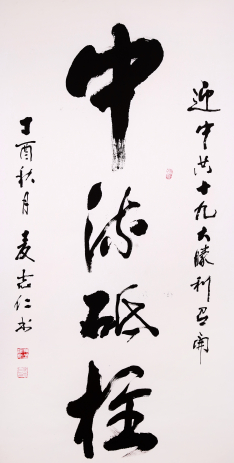 迎中共十九大勝利召開
中流砥柱
丁酉秋月 麦志仁书